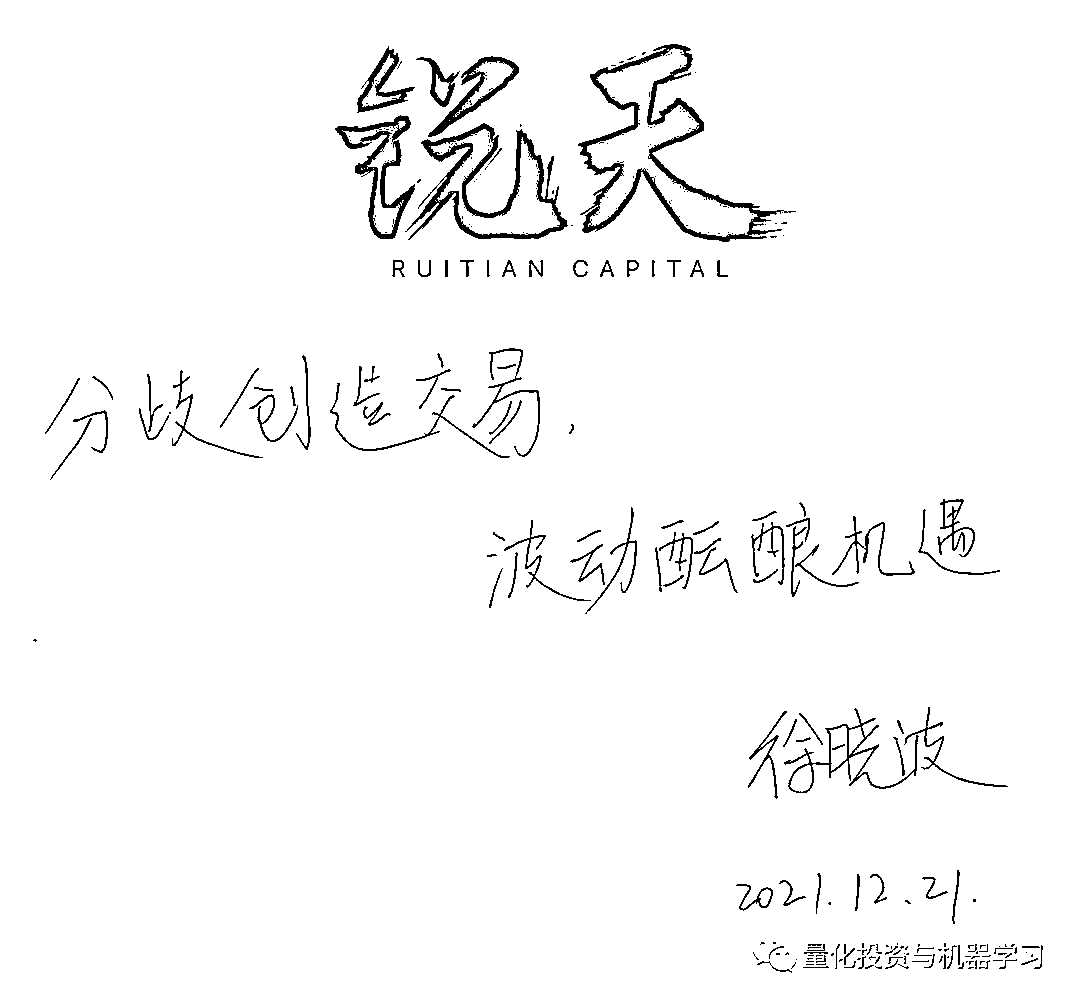 锐天
RUITIAN CAPITAL
分歧创造交易,
波动酝酿机遇
徐晓波
2021.12.21.
量化投资与机器学习